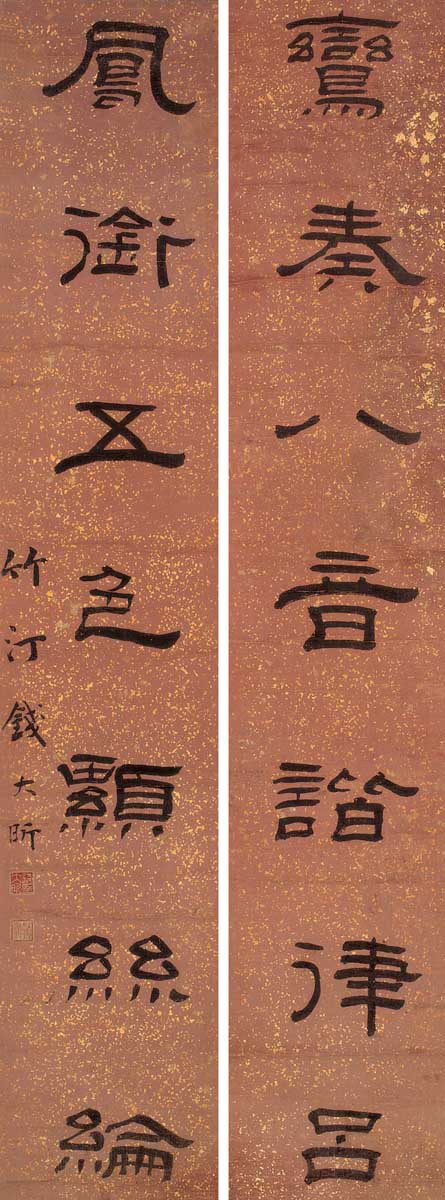 鸞奏八音諧律呂
鳳銜五色顯絲綸
竹汀錢大昕